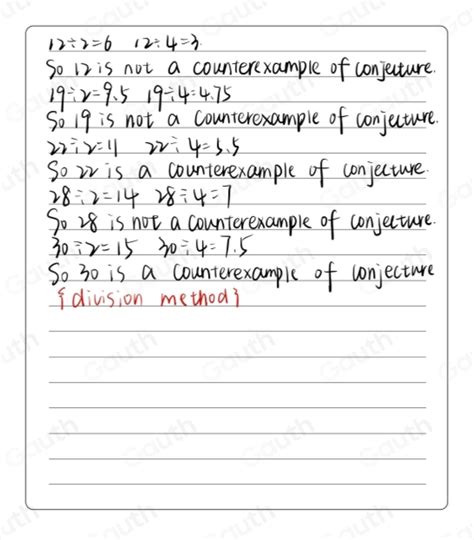 12÷2=6 12÷4=3
So 12 is not a counterexample of conjecture.
19÷2=9.5 19÷4=4.75
So 19 is not a counterexample of conjecture.
22÷2=11 22÷4=5.5
So 22 is a counterexample of conjecture.
28÷2=14 28÷4=7
So 28 is not a counterexample of conjecture.
30÷2=15 30÷4=7.5
So 30 is a counterexample of conjecture
{division method}